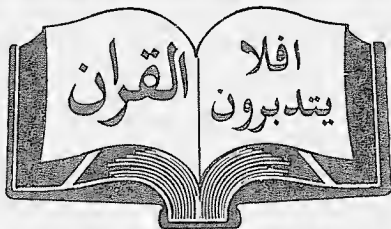 افلا
يتدبرون
القران